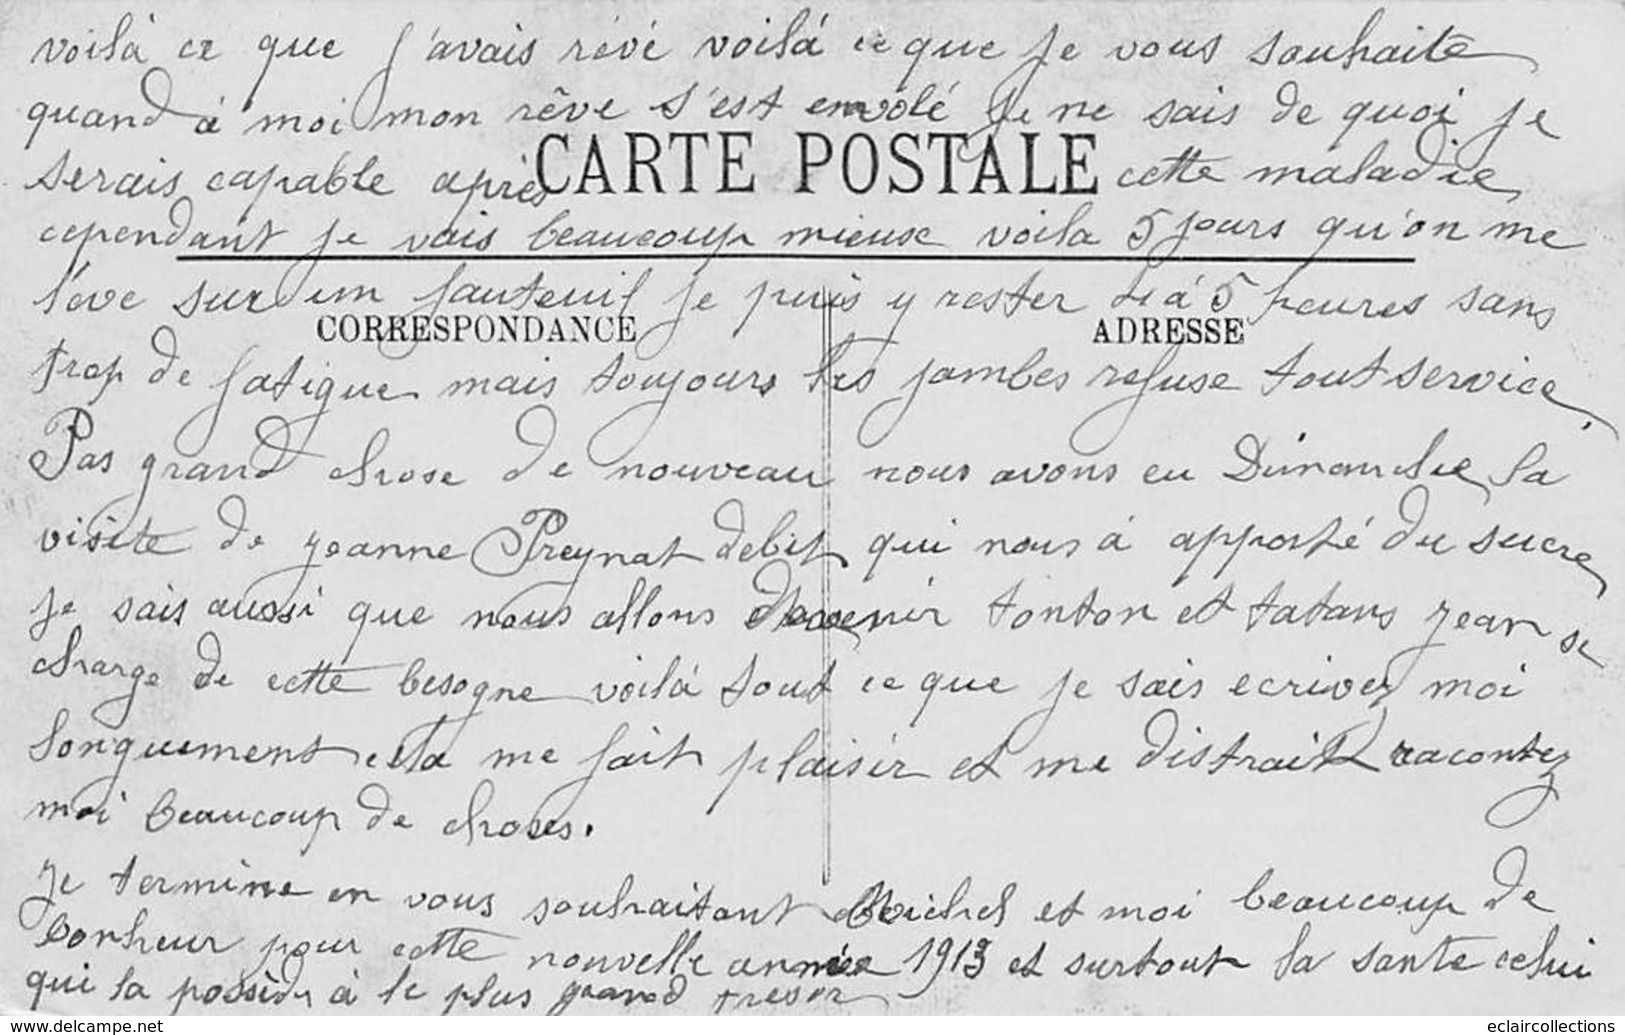 voilà ce que j'avais rêvé voilà ce que je vous souhaite
quand à moi mon rêve s'est envolé je ne sais de quoi je
CARTE POSTALE
serais capable après cette maladie
cependant je vais beaucoup mieux voila 5 jours qu'on me
lève sur un fauteuil je puis y rester 4 à 5 heures sans
CORRESPONDANCE
ADRESSE
trop de fatigue mais toujours les jambes refuse tout service,
Pas grand chose de nouveau nous avons eu Dimanche la
visite de Jeanne Preynat debit qui nous à apporté du sucre
je sais aussi que nous allons devenir tonton et tatans Jean se
charge de cette besogne voilà tout ce que je sais ecrivez moi
longuement cela me fait plaisir et me distrait racontez
moi beaucoup de choses.
Je termine en vous souhaitant Michel et moi beaucoup de
bonheur pour cette nouvelle année 1913 et surtout la sante celui
qui la possède à le plus grand tresor
eclaircollections
www.delcampe.net